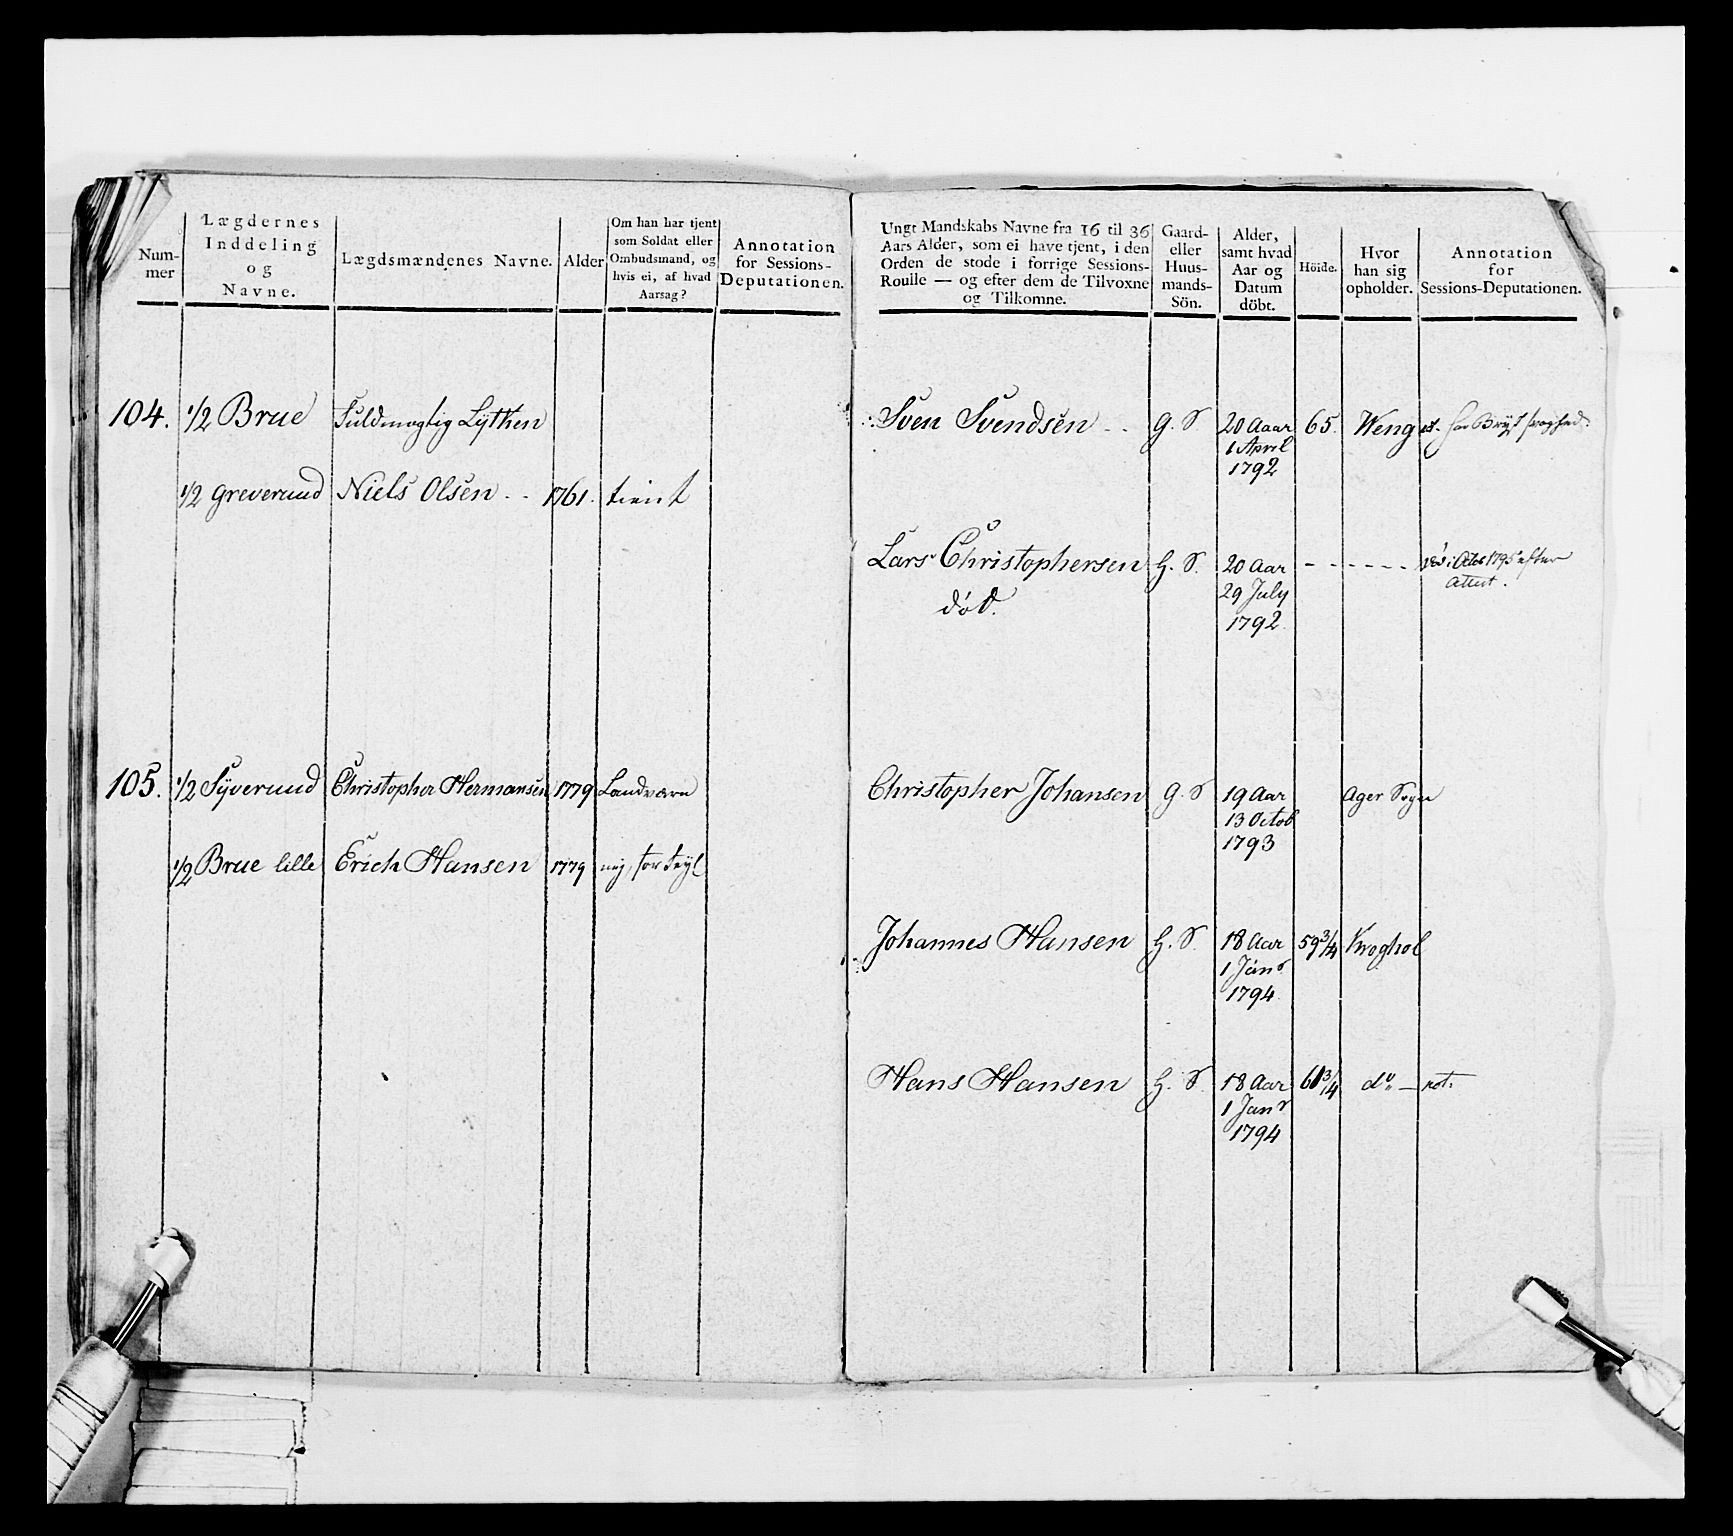 Num-
mer
Lægdernes
Inddeling
og
Navne.
Lægdsmændenes Navne.
Alder
Om han har tjent
som Soldat eller
Ombudsmand, og
hvis ei, af hvad
Aarsag?
Annotation
for Sessions-
Deputationen.
104. 1/2 Brue Fuldmægtig Lythen
1/2 Greverud Niels Olsen - - 1761. tient
105. 1/2 Syverud Christopher Hermansen 1779 Landværn
1/2 Brue lille Erich Hansen 1779 nej, for
Ungt Mandskabs Navne fra 16 til 36
Aars Alder, som ei have tjent, i den
Orden de stode i forrige Sessions-
Roulle — og efter dem de Tilvoxne
og Tilkomne.
Gaard-
eller
Huus-
mands-
Sön.
Alder,
samt hvad
Aar og
Datum
döbt.
Höide.
Hvor
han sig
opholder.
Annotation
for
Sessions-Deputationen.
Sven Svendsen - - G. S 20 Aaar 65. Weng har Bryst svaghed
1 April
1792
Lars Christophersen H. S. 20 Aar - - - - - - i Octob 1795 efter
død. 29 July attest.
1792.
Christopher Johansen G. S 19 Aar Ager Sogn
13 Octob
1793
Johannes Hansen H. S. 18 Aar 59 3/4 Kroghol
1 Janr
1794.
Hans Hansen H. S. 18 Aar 61 3/4 do — not.
1 Janr
1794